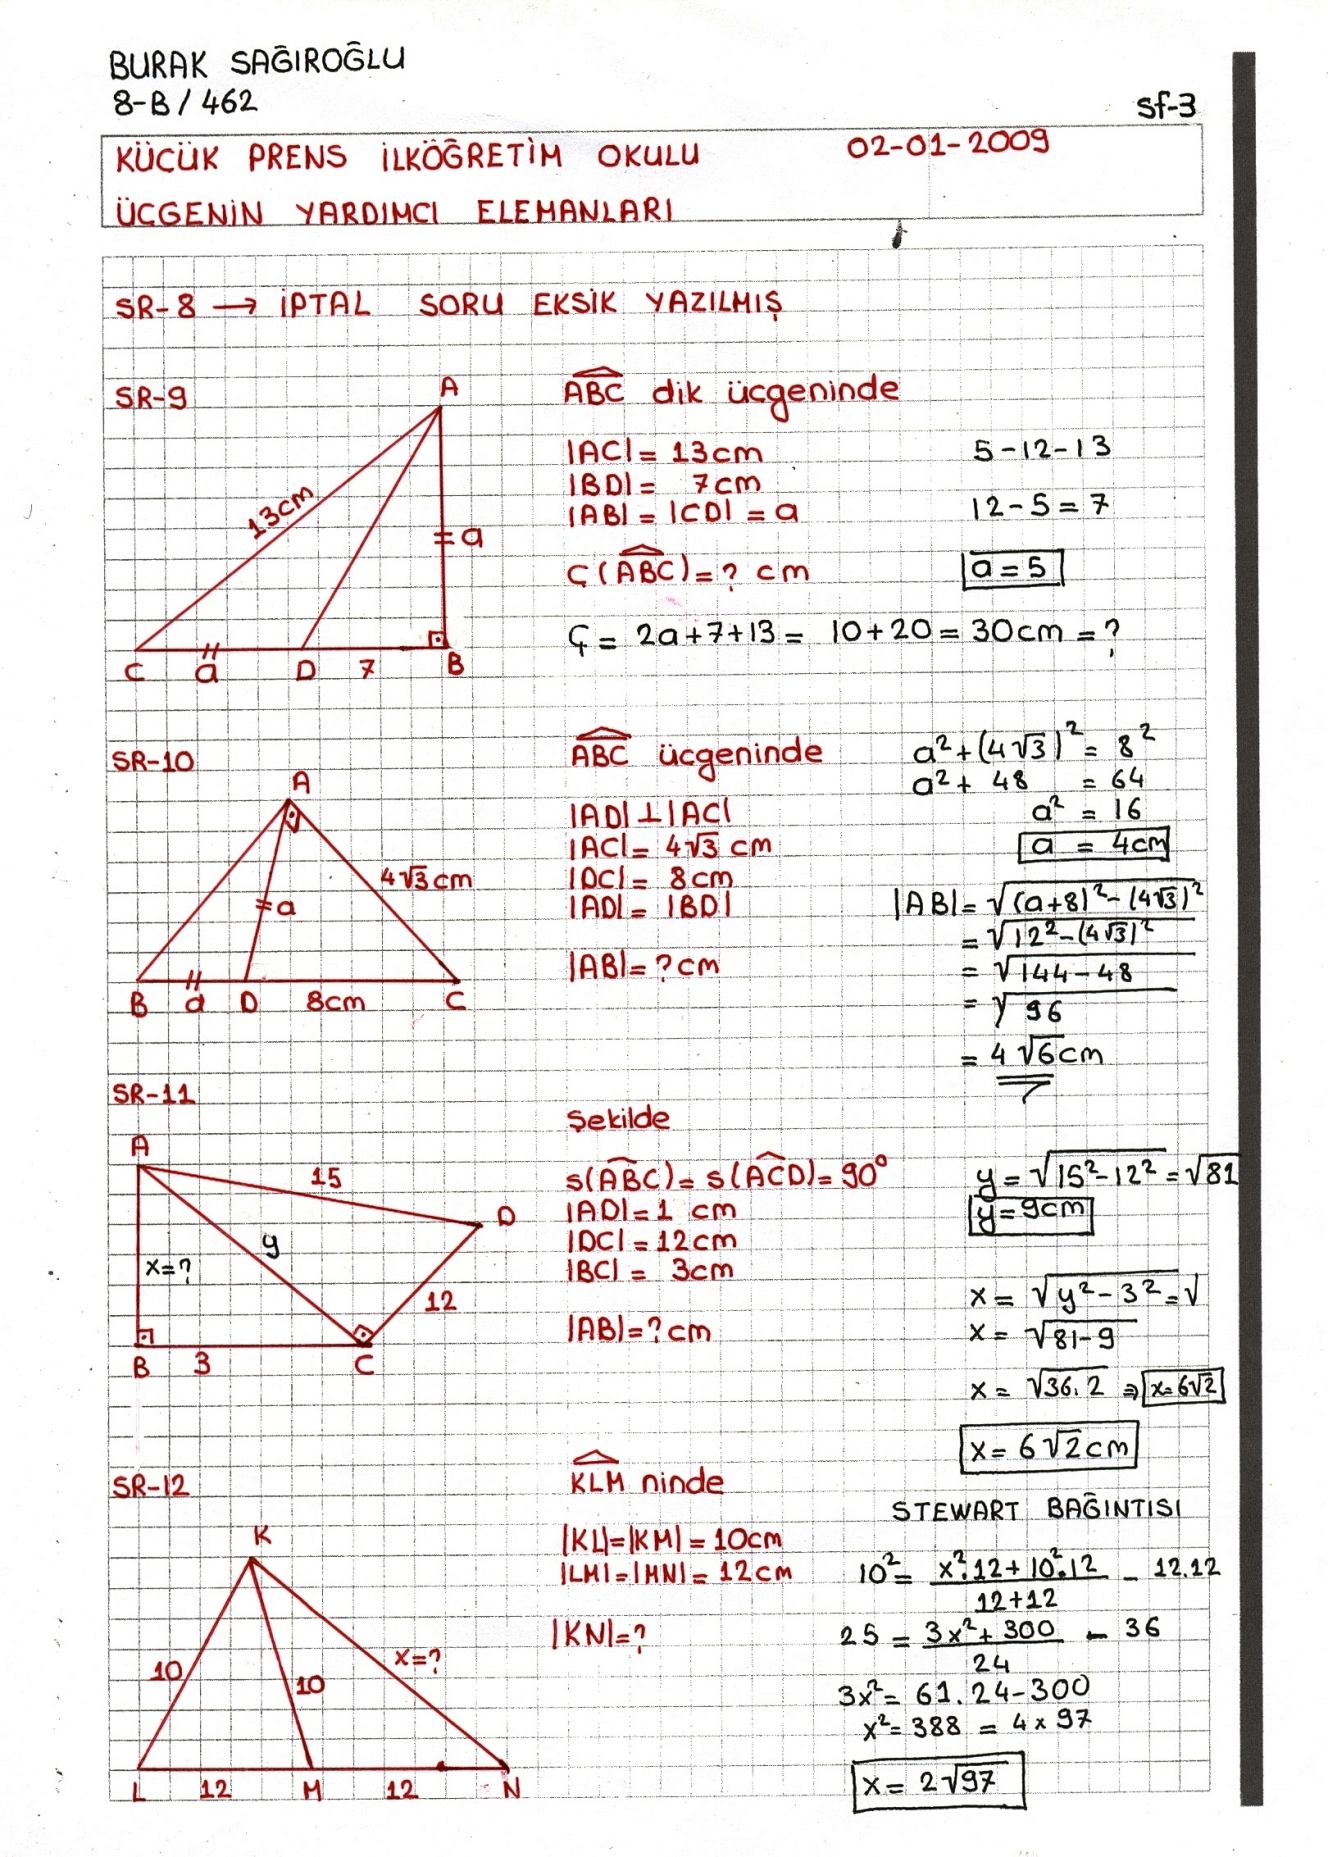 BURAK SAĞIROĞLU
8-B / 462
Sf-3
KÜÇÜK PRENS İLKÖĞRETİM OKULU 02-01-2009
ÜCGENİN YARDIMCI ELEMANLARI
SR-8 → İPTAL SORU EKSİK YAZILMIŞ
SR-9
A
13cm
= a
C a D 7 B
ABC dik ücgeninde
|AC| = 13cm
|BD| = 7cm
|AB| = |CD| = a
Ç(ABC) = ? cm
5-12-13
12-5 = 7
a = 5
Ç = 2a+7+13 = 10+20 = 30cm = ?
SR-10
A
4√3 cm
= a
B a D 8cm C
ABC ücgeninde
|AD| ⊥ |AC|
|AC| = 4√3 cm
|DC| = 8cm
|AD| = |BD|
|AB| = ? cm
a² + (4√3)² = 8²
a² + 48 = 64
a² = 16
a = 4cm
|AB| = √(a+8)² - (4√3)²
= √12² - (4√3)²
= √144 - 48
= √96
= 4√6 cm
SR-11
A
15
D
y
x = ?
12
B 3 C
Şekilde
s(ABC) = s(ACD) = 90°
|AD| = 1 cm
|DC| = 12cm
|BC| = 3cm
|AB| = ? cm
y = √15² - 12² = √81
y = 9cm
x = √y² - 3² = √
x = √81 - 9
x = √36.2 ⇒ x = 6√2
x = 6√2 cm
SR-12
K
10
10
x = ?
L 12 M 12 N
KLM ninde
|KL| = |KM| = 10cm
|LM| = |MN| = 12cm
|KN| = ?
STEWART BAĞINTISI
10² = x².12 + 10².12 - 12.12
12+12
25 = 3x² + 300 - 36
24
3x² = 61.24 - 300
x² = 388 = 4 x 97
x = 2√97